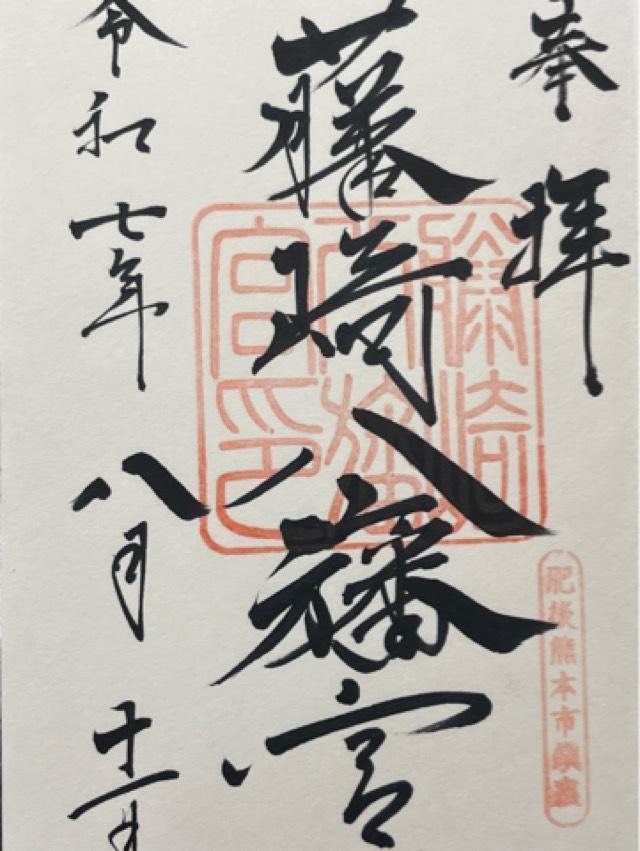 奉拝
藤崎八旛宮
令和七年八月十一日
藤崎
八旛
宮印
肥後熊本市鎮座